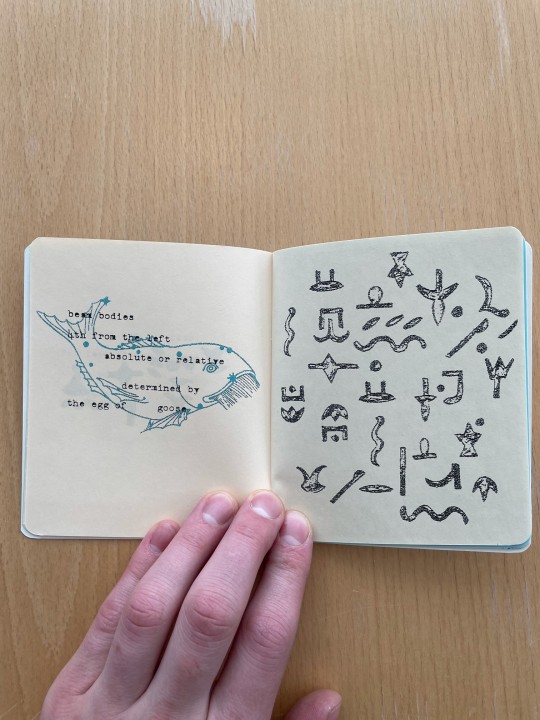 beam bodies
nth from the left
absolute or relative
determined by
the egg of goose